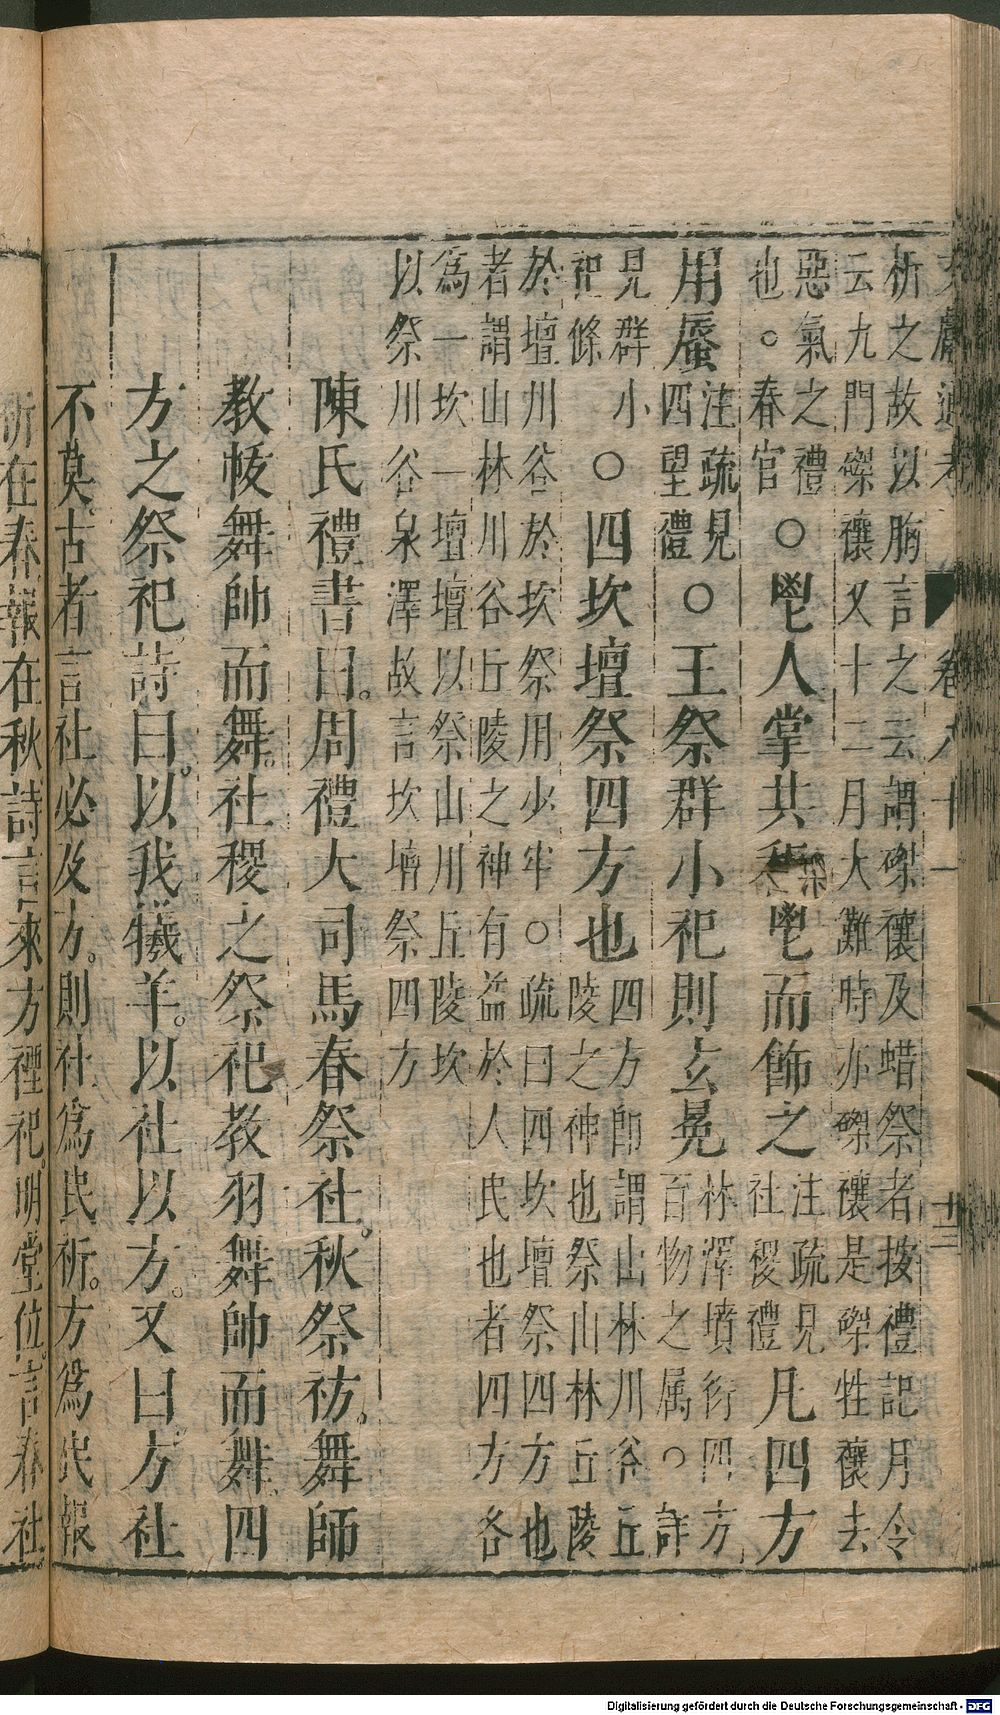 文獻通考 卷八十一 十三
祈之故以胸言之云謂磔禳及蜡祭者按禮記月令
云九門磔禳又十二月大難時亦磔禳是磔牲禳去
惡氣之禮
也○春官
○鬯人掌共秬鬯而飾之
注疏見
社稷禮
凡四方
用蜃
注疏見
四望禮
○王祭群小祀則玄冕
林澤墳衍四方
百物之属○詳
見群小
祀條
○四坎壇祭四方也
四方即謂山林川谷丘
陵之神也祭山林丘陵
於壇川谷於坎祭用少牢○疏曰四坎壇祭四方也
者謂山林川谷丘陵之神有益於人民也者四方各
爲一坎一壇壇以祭山川丘陵坎
以祭川谷泉澤故言坎壇祭四方
陳氏禮書曰。周禮大司馬春祭社。秋祭祊。舞師
教帗舞帥而舞。社稷之祭祀教羽舞帥而舞四
方之祭祀。詩曰。以我犧羊。以社以方。又曰。方社
不莫。古者言社必及方。則社爲民祈。方爲民報
祈在春。報在秋。詩言來方禋祀。明堂位。言春社
Digitalisierung gefördert durch die Deutsche Forschungsgemeinschaft - DFG